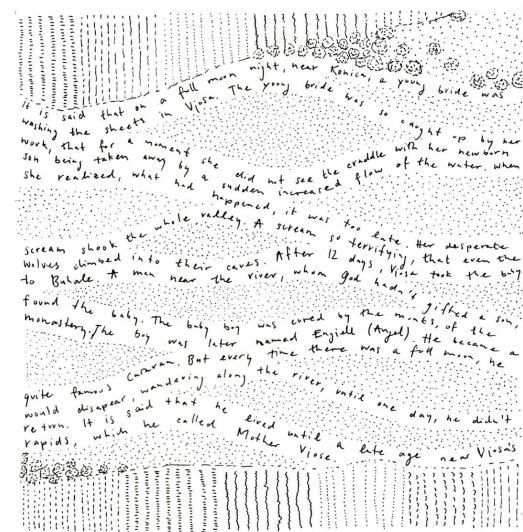 It is said that on a full moon night, near Konica, a young bride was
washing the sheets in Vjosa. The yong bride was so caught up by her
work, that for a moment she did not see the craddle with her newborn
son being taken away by a sudden increased flow of the water. when
she realized, what had happened, it was too late. Her desperate
scream shook the whole valley. A scream so terrifying, that even the
wolves climbed into their caves. After 12 days, Vjosa took the boy
to Buhale. A man near the river, whom god hadn't gifted a son,
found the baby. The baby boy was cured by the monks, of the
monastery. The boy was later named Engjell (Angel) He became a
quite famous Caravan. But every time there was a full moon, he
would disapear, wandering along the river, until one day, he didn't
return. It is said that he lived until a late age near Viosa's
rapids, which he called Mother Viose.